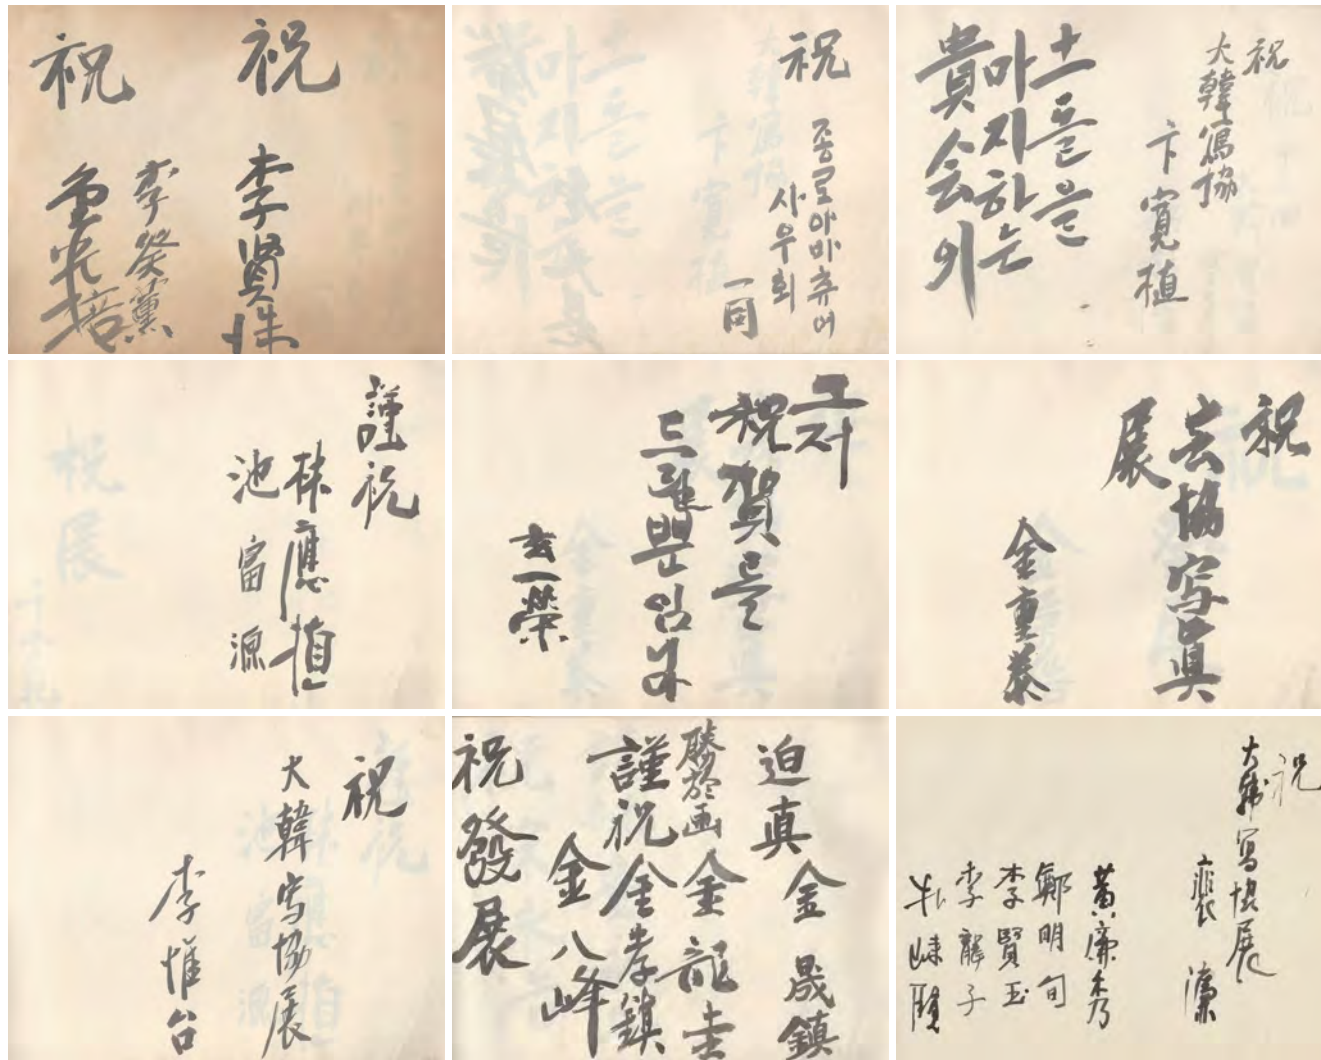 祝
李賢洙
祝
李癸薰
祝
종로아마츄어
사우회
一同
祝
大韓寫協
卞寬植
十一돌을
마지하는
貴会이
謹祝
林應植
池富源
그저
祝賀를
드릴뿐임니다
玄一榮
祝
芸協写真
展
金重泰
祝
大韓写協展
李惟台
迫真
金晟鎮
勝於画
金龍圭
謹祝
金孝鎮
金八峰
祝發展
祝
大韓写協展
裵濂
黃廉秀
鄭明旬
李賢玉
李